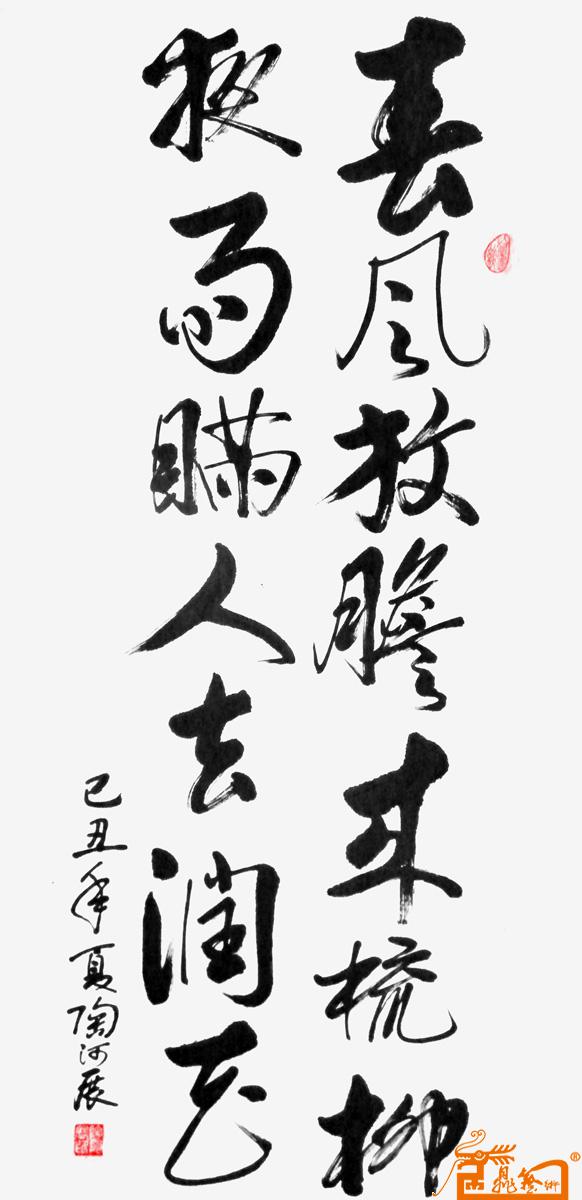 春风放胆来梳柳
夜雨瞒人去润花
己丑年夏陶河展